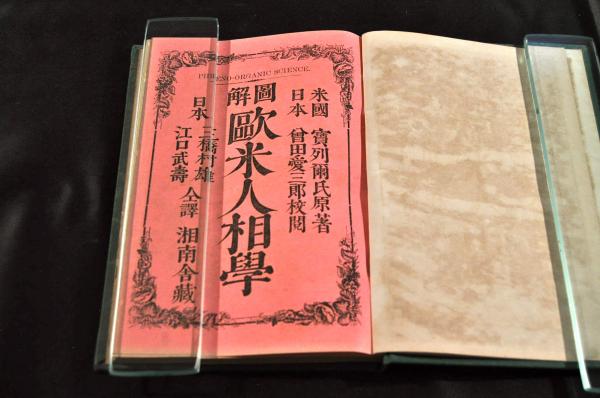 PHRENO-ORGANIC SCIENCE.
米國 寳列爾氏原著
日本 曾田愛三郎校閲
圖解
歐米人相學
日本 三橋村雄
江口武壽 仝譯 湘南舍藏